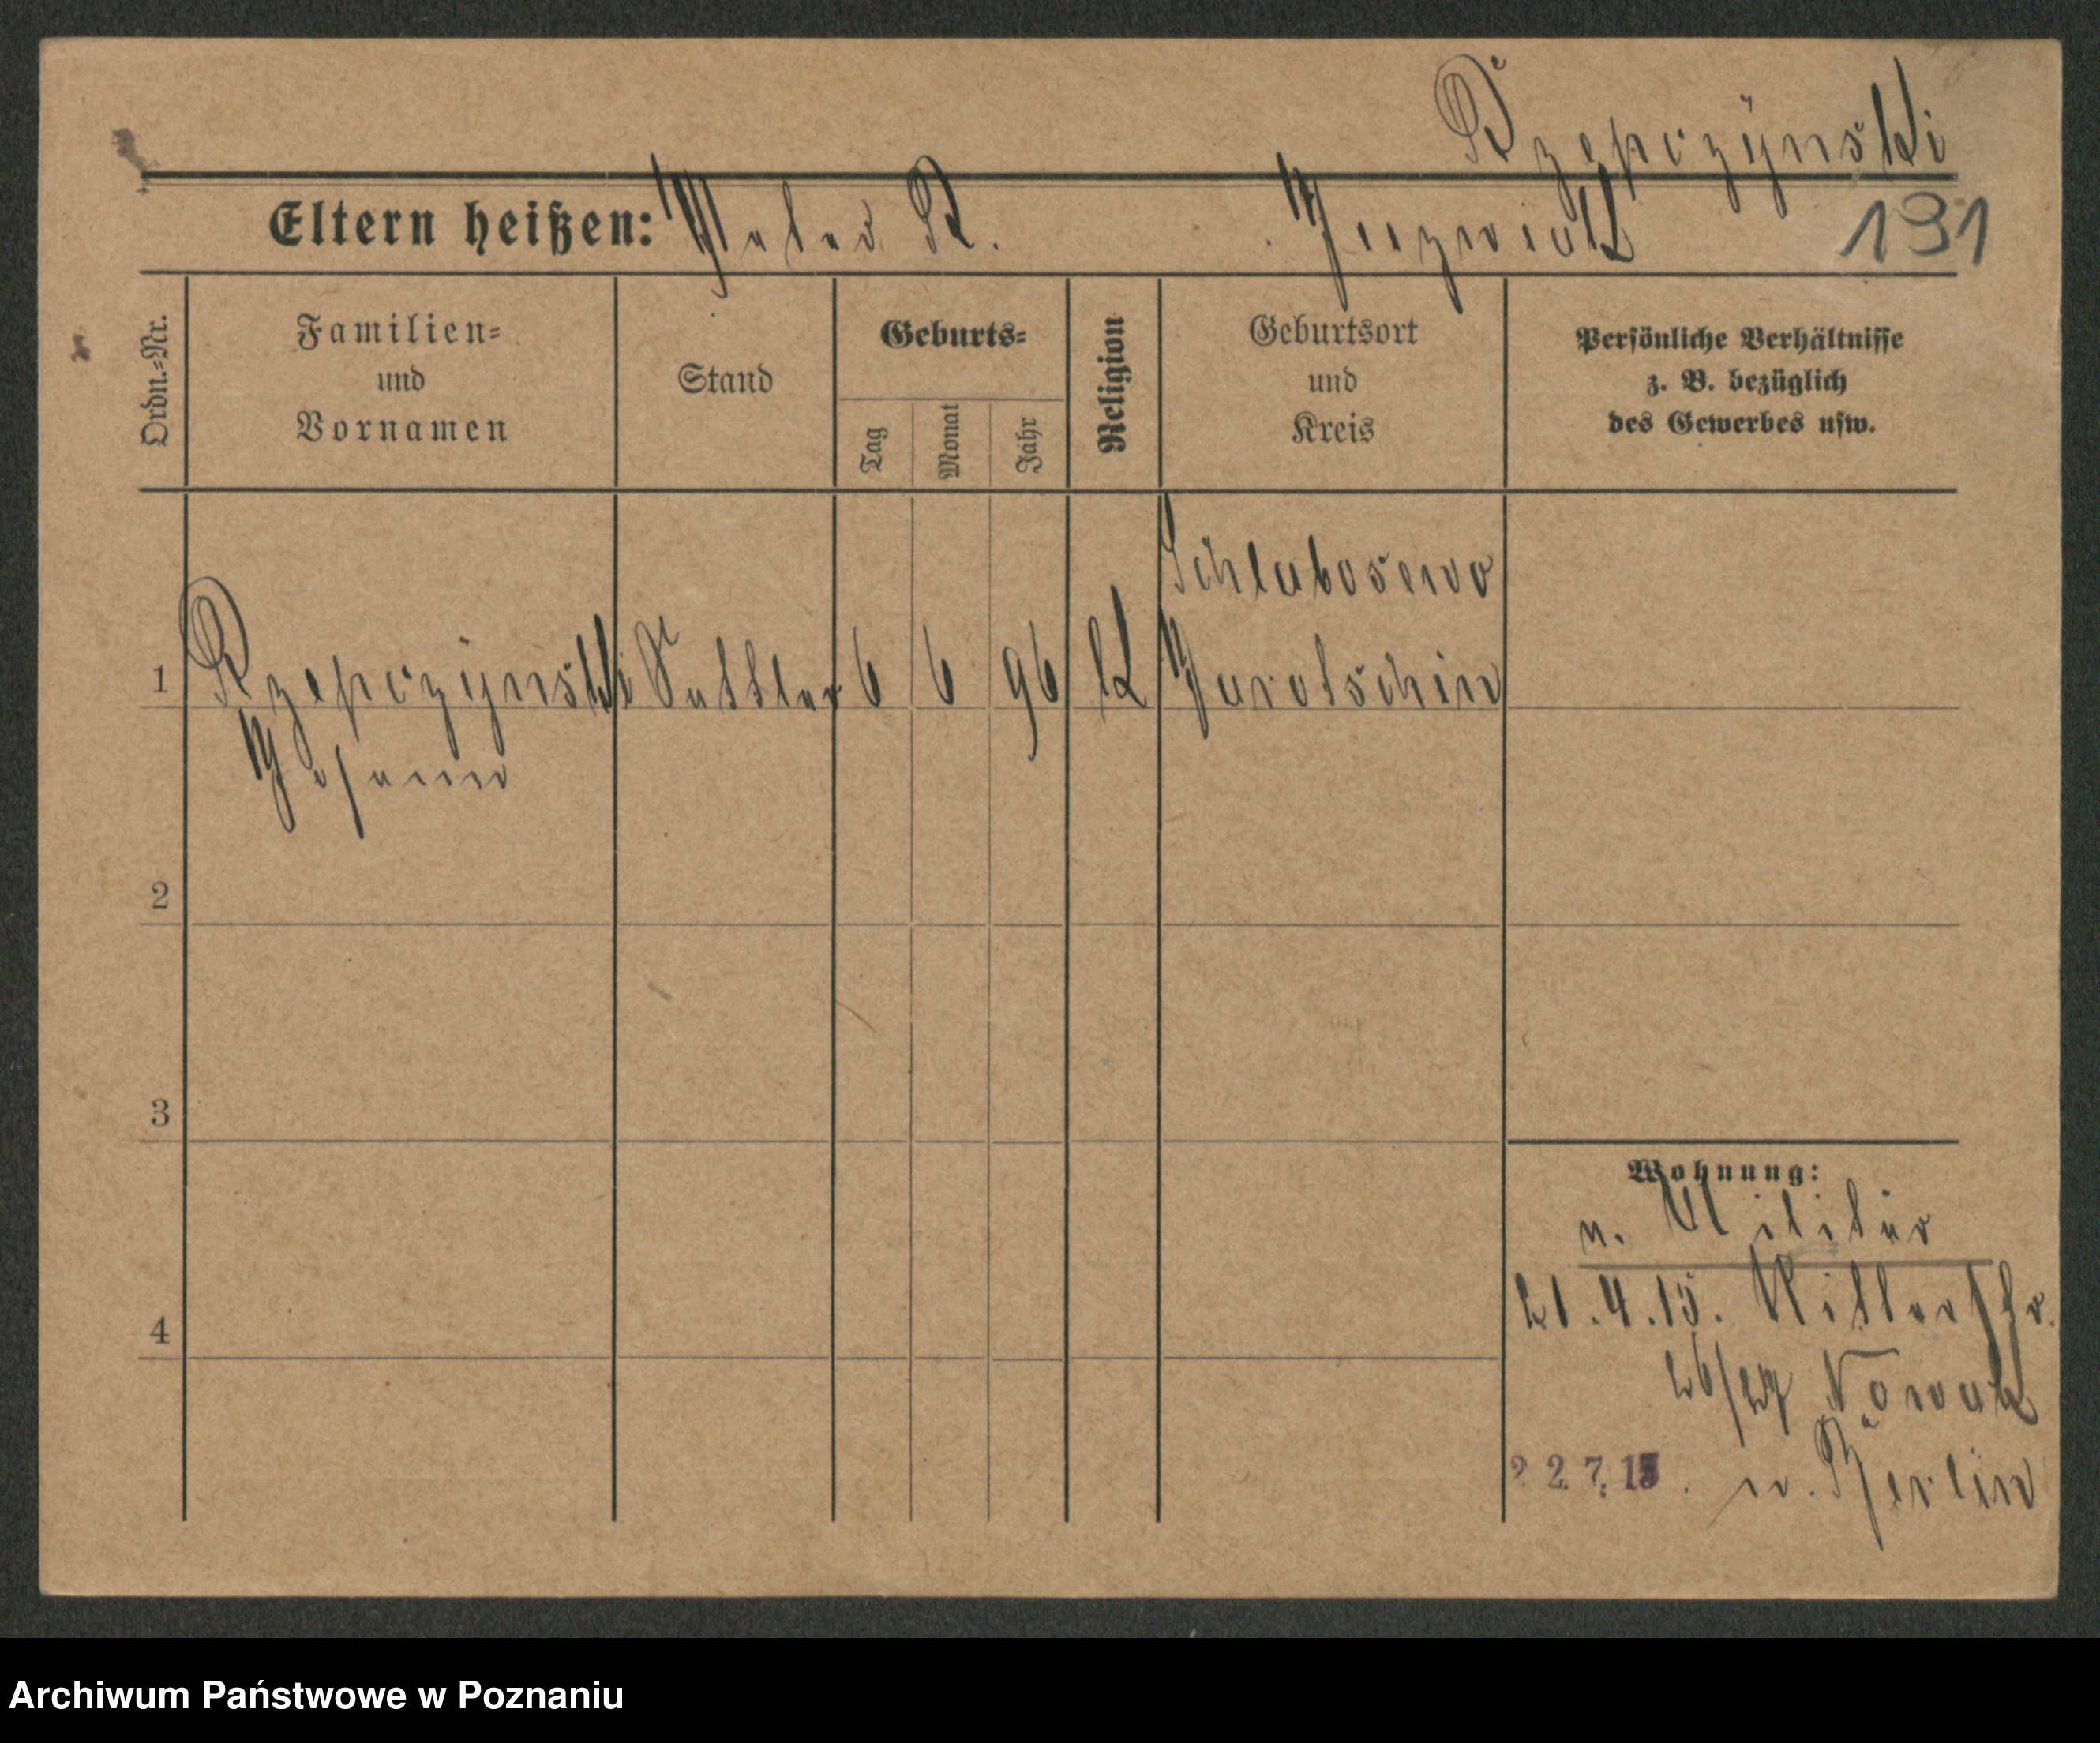 Rzepczynski
Eltern heißen: Peter R. Juzwiak 191
Ordn.=Nr.
Familien=
und
Vornamen
Stand
Geburts=
Tag
Monat
Jahr
Religion
Geburtsort
und
Kreis
Persönliche Verhältnisse
z. B. bezüglich
des Gewerbes usw.
Schlabosewo
1 Rzepczynski Sattler 6 6 96 k Jarotschin
Johann
2
3
Wohnung:
n. Militär
21.4.15. Ritterstr.
4
Nowak
22 7. 15. n. Berlin
Archiwum Państwowe w Poznaniu